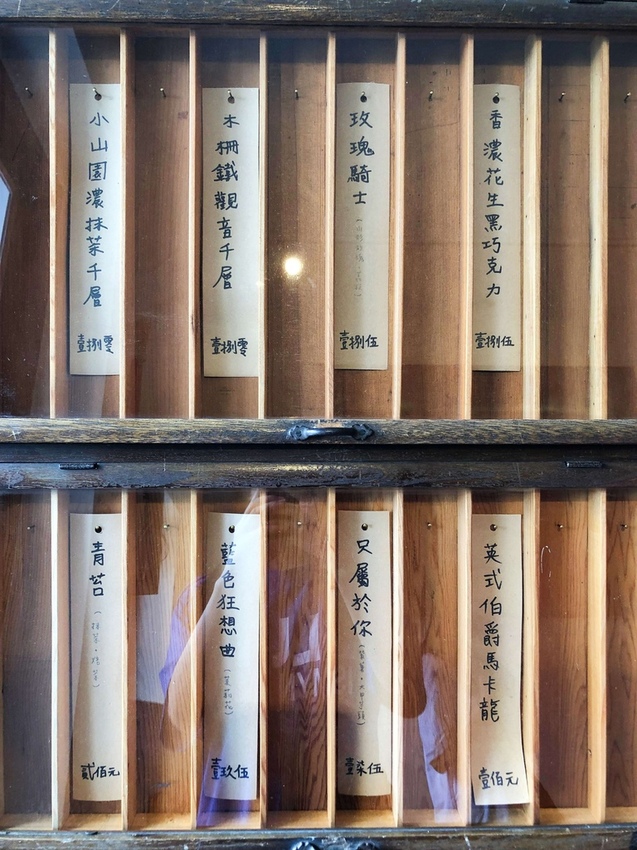 小山園濃抹茶千層
壹捌零
木柵鐵觀音千層
壹捌零
玫瑰騎士
壹捌伍
香濃花生黑巧克力
壹捌伍
青苔
貳佰元
藍色狂想曲
(茉莉花)
壹玖伍
只屬於你
壹柒伍
英式伯爵馬卡龍
壹佰元